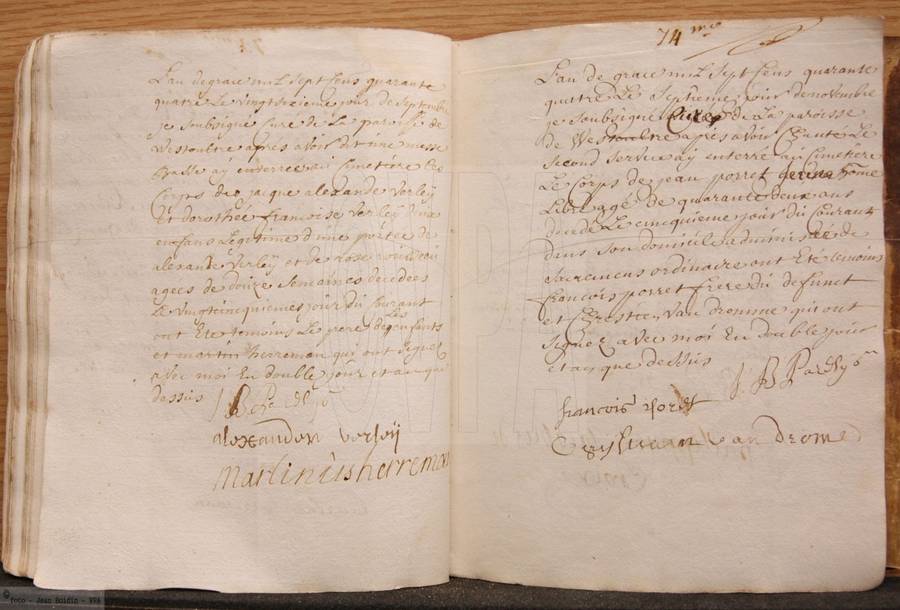 L'an de grace mil sept cens quarante
quatre Le vingtsixieme jour de septembre
je soubsigné curé de La paroisse de
Westoultre apres avoir dit une messe
Basse ay enterrée au Cimetiere Les
Corps de jaque alexandre Verley
Et dorothée francoise Verley deux
enfans Legitime d'une portée de
alexandre Verley et de Rose
agees de douze Semaines decedees
Le vingtcinquiemes jour du Courant
ont Eté temoins Le pere des enfants
et martin herreman qui ont signez
avec moi En double jour et an que
dessus
alexander verleij
Martinus herreman
74 me
L'an de grace mil Sept Cens quarante
quatre Le Septieme jour de novembre
je Soubsigné Curé de La paroisse
de Westoultre apres avoir Chanté Le
Second Service ay enterré au Cimetiere
Le Corps de jean porret jeune home
Libre agé de quarante deux ans
decedé Le cinquieme jour du Courant
dans son domicile administré de
Sacremens ordinaire ont Eté temoins
francois porret frere du defunct
et Van dromme qui ont
signez avec moi En double jour
et an que dessus
francois poret
van drome
© Foto - Jean Boidin - VVA